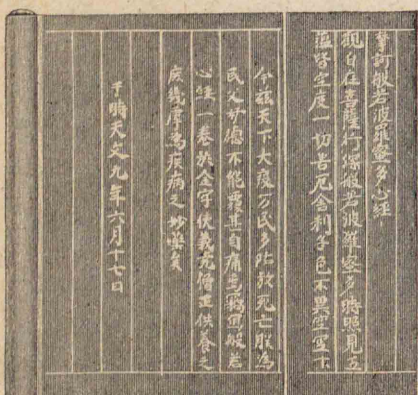 摩訶般若波羅蜜多心経
観自在菩薩行深般若波羅蜜多時照見五
蘊皆空度一切苦厄舎利子色不異空空不
今茲天下大疫万民多阽於死亡朕為
民父母徳不能覆甚自痛焉竊写般若
心経一巻於金字使義堯僧正供養之
庶幾虖為疾病之妙薬矣
于時天文九年六月十七日